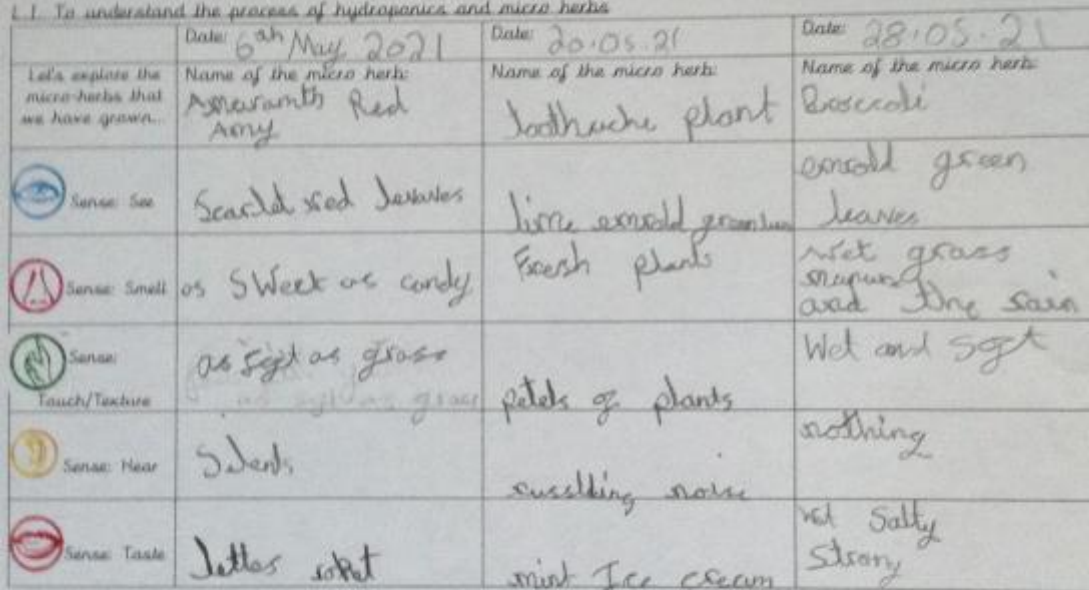 L.I. To understand the process of hydroponics and micro herbs
Date: 6th May 2021
Date: 20.05.21
Date: 28.05.21
Let's explore the
micro-herbs that
we have grown...
Name of the micro herb:
Amaranth Red
Amy
Name of the micro herb:
plant
Name of the micro herb:
Broccoli
Sense: See
Scarlet red
lime emrald green
emrald green
leaves
Sense: Smell
as sweet as candy
Fresh plants
wet grass
and the rain
Sense:
Touch/Texture
as soft as grass
petels of plants
Wet and soft
Sense: Hear
Silents
russlling noise
nothing
Sense: Taste
mint Ice cream
Salty
Strong